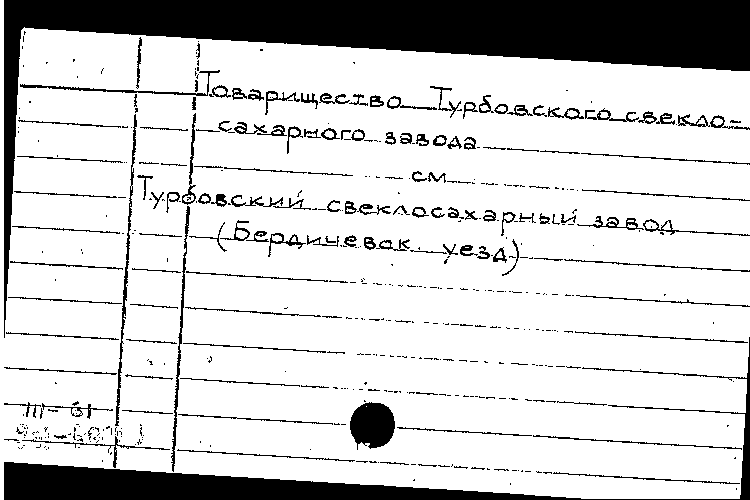 Товарищество Турбовского свекло-
сахарного завода
см
Турбовский свеклосахарный завод
(Бердичевск. уезд)
III - 61